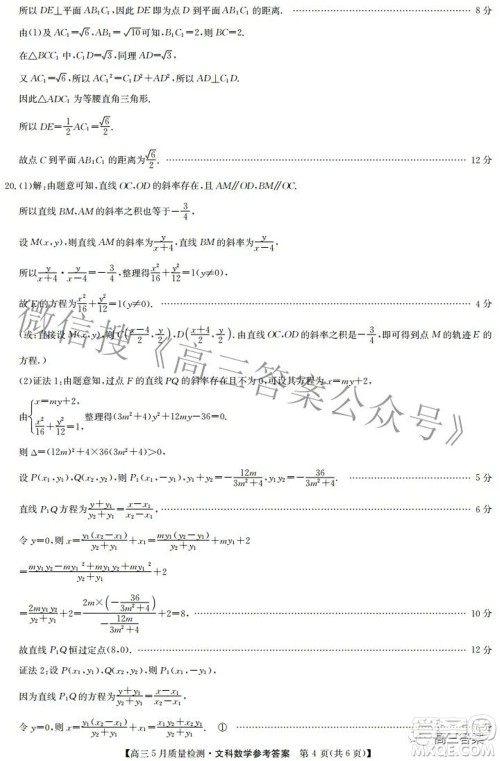 所以 DE⊥平面 AB₁C₁. 因此 DE 即为点 D 到平面 AB₁C₁ 的距离. …… 8 分
由(1)及 AC=√5, AB=1, 则 BC=2.
在△BCC₁ 中, C₁D=√3, 同理 AD=√3,
又 AC₁=√6, 所以 AC₁²=C₁D²+AD², 所以 AD⊥C₁D.
因此△ADC₁ 为等腰直角三角形.
所以 DE=1/2 AC₁=√6/2.
故点 C 到平面 AB₁C₁ 的距离为√6/2. …… 12 分
20. (1)解:由题意可知, 直线 OC, OD 的斜率存在, 且 AM∥OD, BM∥OC.
所以直线 BM, AM 的斜率之积也等于−3/4,
设 M(x, y), 则直线 AM 的斜率为 y/(x+4), 直线 BM 的斜率为 y/(x−4).
所以 y/(x+4)·y/(x−4)=−3/4, 整理得 x²/16+y²/12=1(y≠0),
故 E 的方程为 x²/16+y²/12=1(y≠0). …… 4 分
(或:直接设 M(x, y), C((x−4)/2, y/2), D((x+4)/2, y/2). 由直线 OC, OD 的斜率之积是−3/4, 即可得点 M 的轨迹 E 的
方程.)
(2)证法 1:由题意知, 过点 F 的直线 PQ 的斜率存在且不为 0, 可设其方程为 x=my+2,
由{x=my+2, x²/16+y²/12=1, 整理得(3m²+4)y²+12my−36=0.
则 Δ=(12m)²+4×36(3m²+4)>0.
设 P(x₁, y₁), Q(x₂, y₂), 则 P₁(x₁, −y₁), y₁+y₂=−12m/(3m²+4), y₁y₂=−36/(3m²+4). …… 5 分
直线 P₁Q 方程为 (y+y₁)/(y₂+y₁)=(x−x₁)/(x₂−x₁). …… 6 分
令 y=0, 则 x=y₁(x₂−x₁)/(y₂+y₁)+x₁=my₁(y₂−y₁)/(y₂+y₁)+my₁+2
=(my₁y₂−my₁²+my₁y₂+my₁²)/(y₂+y₁)+2
=2my₁y₂/(y₂+y₁)+2=2m×(−36/(3m²+4))/(−12m/(3m²+4))+2=8, …… 10 分
故直线 P₁Q 恒过定点(8, 0). …… 12 分
证法 2:设 P(x₁, y₁), Q(x₂, y₂), 则 P₁(x₁, −y₁),
因为直线 P₁Q 的方程为 (y+y₁)/(y₂+y₁)=(x−x₁)/(x₂−x₁),
令 y=0, 则 x=y₁(x₂−x₁)/(y₂+y₁)+x₁=(x₁y₂+x₂y₁)/(y₂+y₁). ①
【高三 5 月质量检测·文科数学参考答案 第 4 页(共 6 页)】
高三答案
微信搜《高三答案公众号》